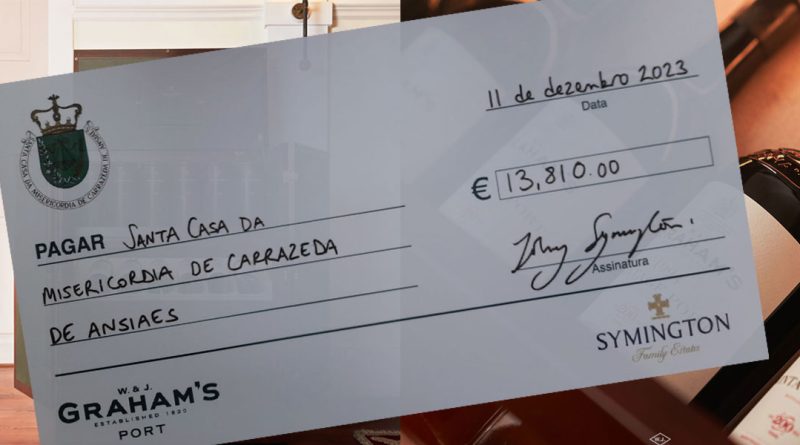 11 de dezembro 2023
Data
SANTA CASA DA MISERICORDIA DE CARRAZEDA DE ANSIAES
€ 13,810.00
PAGAR SANTA CASA DA
MISERICORDIA DE CARRAZEDA
DE ANSIAES
Assinatura
SYMINGTON
Family Estates
W. & J.
GRAHAM'S
ESTABLISHED 1820
PORT
200